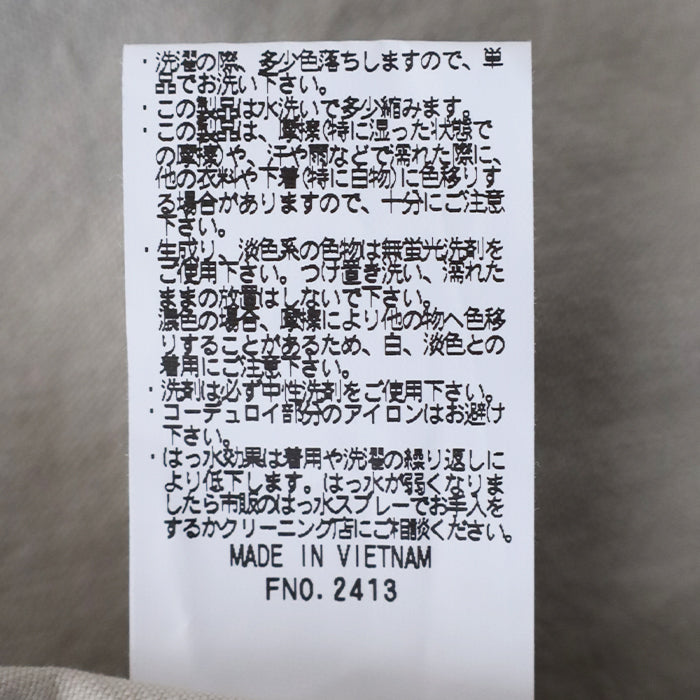 ・洗濯の際、多少色落ちしますので、単
品でお洗い下さい。
・この製品は水洗いで多少縮みます。
・この製品は、摩擦(特に湿った状態で
の摩擦)や、汗や雨などで濡れた際に、
他の衣料や下着(特に白物)に色移りす
る場合がありますので、十分にご注意
下さい。
・生成り、淡色系の色物は無蛍光洗剤を
ご使用下さい。つけ置き洗い、濡れた
ままの放置はしないで下さい。
濃色の場合、摩擦により他の物へ色移
りすることがあるため、白、淡色との
着用にご注意下さい。
・洗剤は必ず中性洗剤をご使用下さい。
・コーデュロイ部分のアイロンはお避け
下さい。
・はっ水効果は着用や洗濯の繰り返しに
より低下します。はっ水が弱くなりま
したら市販のはっ水スプレーでお手入を
するかクリーニング店にご相談ください。
MADE IN VIETNAM
FNO. 2413